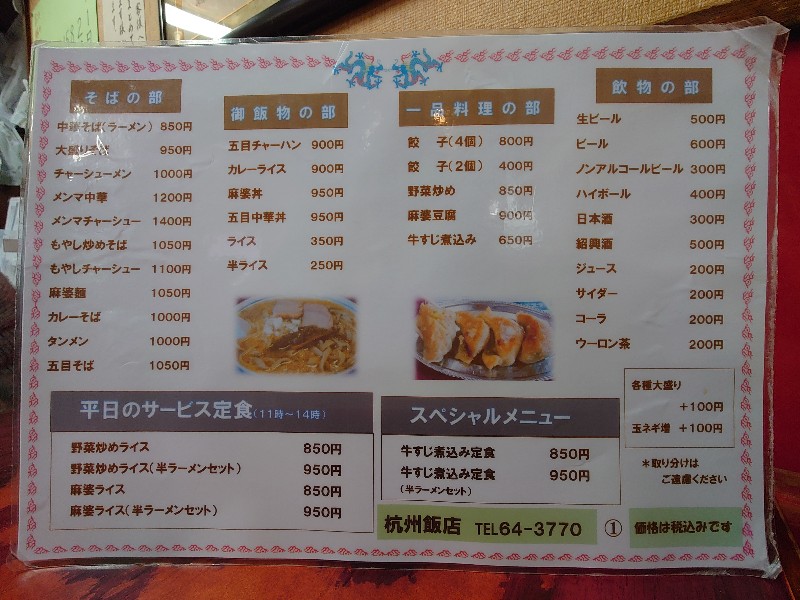 そばの部
中華そば(ラーメン) 850円
950円
チャーシューメン 1000円
メンマ中華 1200円
メンマチャーシュー 1400円
もやし炒めそば 1050円
もやしチャーシュー 1100円
麻婆麺 1050円
カレーそば 1000円
タンメン 1000円
五目そば 1050円
御飯物の部
五目チャーハン 900円
カレーライス 900円
麻婆丼 950円
五目中華丼 950円
ライス 350円
半ライス 250円
一品料理の部
餃 子(4個) 800円
餃 子(2個) 400円
野菜炒め 850円
麻婆豆腐 900円
牛すじ煮込み 650円
飲物の部
生ビール 500円
ビール 600円
ノンアルコールビール 300円
ハイボール 400円
日本酒 300円
紹興酒 500円
ジュース 200円
サイダー 200円
コーラ 200円
ウーロン茶 200円
各種大盛り
+100円
玉ネギ増 +100円
*取り分けは
ご遠慮ください
平日のサービス定食(11時~14時)
野菜炒めライス 850円
野菜炒めライス(半ラーメンセット) 950円
麻婆ライス 850円
麻婆ライス(半ラーメンセット) 950円
スペシャルメニュー
牛すじ煮込み定食 850円
牛すじ煮込み定食 950円
(半ラーメンセット)
杭州飯店 TEL64-3770 ① 価格は税込みです